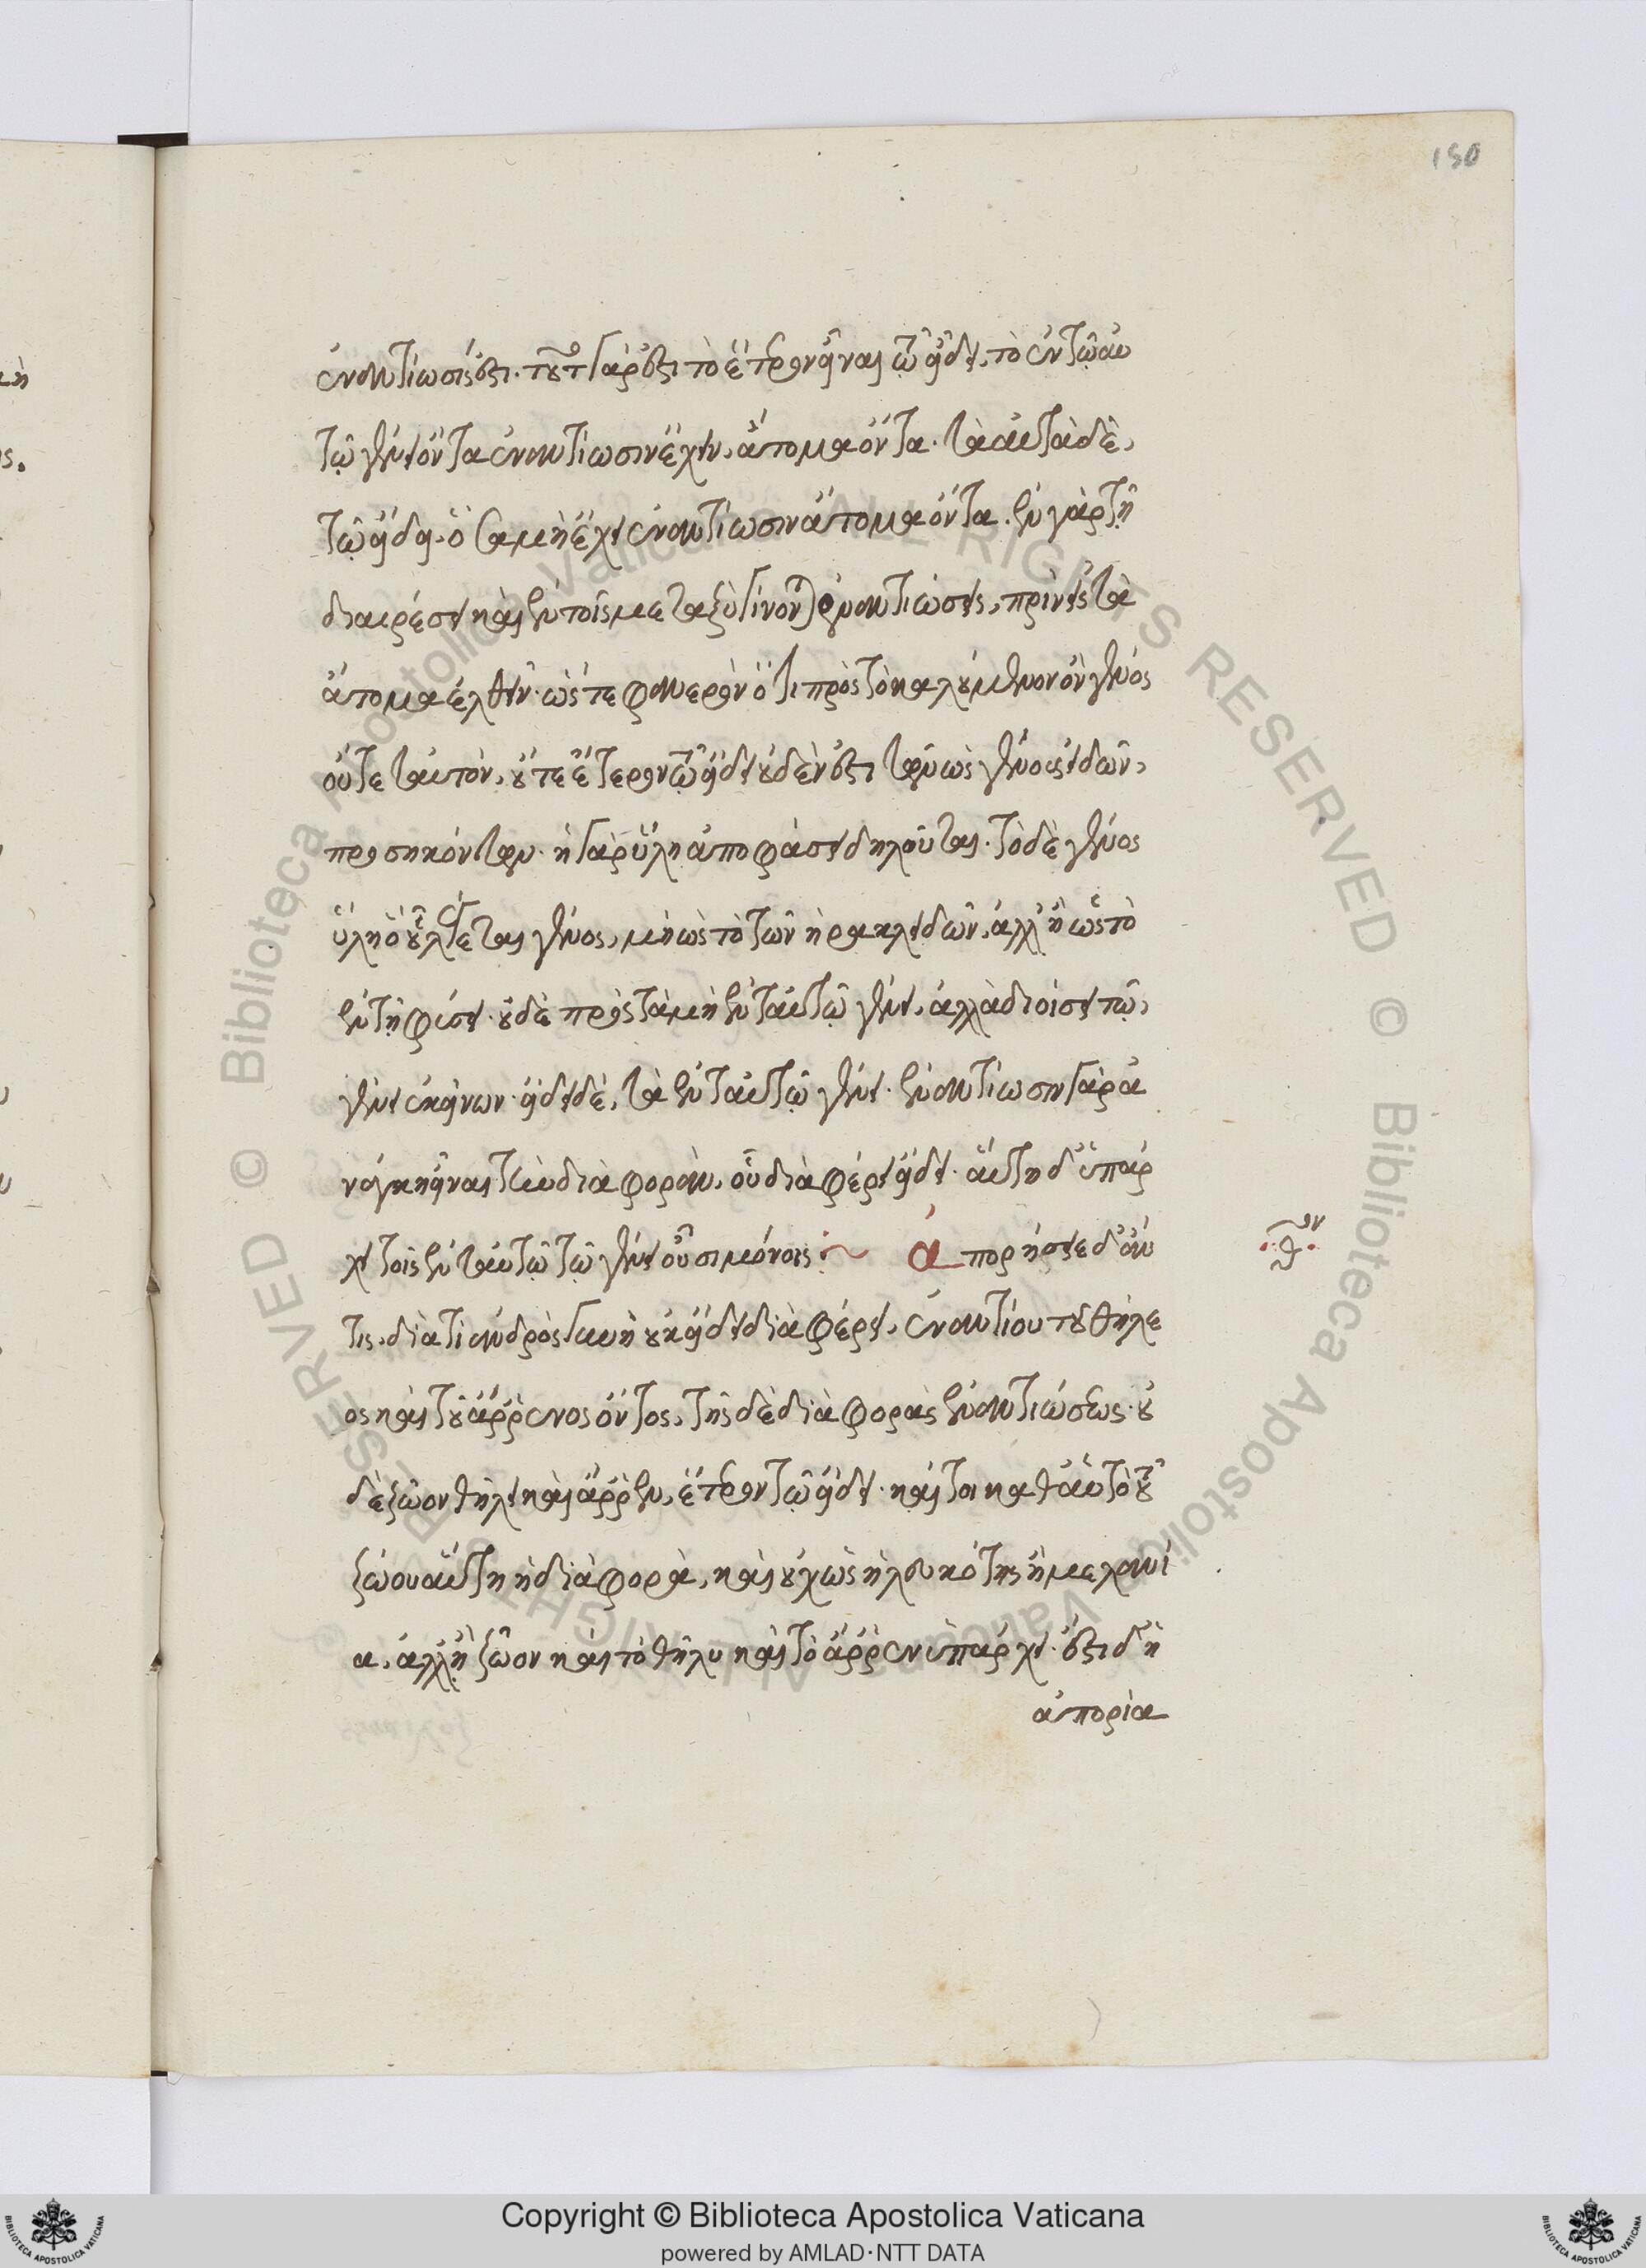 150
ἐναντίωσίς ἐστι. τοῦτο γὰρ ἐστι τὸ ἕτερον εἶναι τῷ εἴδει, τὸ ἐν τῷ αὐ
τῷ γένει ὄντα ἐναντίωσιν ἔχειν, ἄτομα ὄντα. ταὐτὰ δὲ,
τῷ εἴδει. ὅσα μὴ ἔχει ἐναντίωσιν ἄτομα ὄντα. ἐν γὰρ τῇ
διαιρέσει καὶ ἐν τοῖς μεταξὺ γίνονται ἐναντιώσεις, πρὶν εἰς τὰ
ἄτομα ἐλθεῖν. ὥστε φανερὸν ὅτι πρὸς τὸ καλούμενον γένος
οὔτε ταὐτὸν, οὔτε ἕτερον τῷ εἴδει οὐδὲν ἐστι τῶν ὡς γένους εἰδῶν,
προσηκόντων. ἡ γὰρ ὕλη ἀποφάσει δηλοῦται. τὸ δὲ γένος
ὕλη ὃ οὗ λέγεται γένος, μὴ ὡς τὸ τῶν ἡρακλειδῶν, ἀλλ' ἢ ὡς τὸ
ἐν τῇ φύσει. οὐδὲ πρὸς τὰ μὴ ἐν ταὐτῷ γένει, ἀλλὰ διοίσει τῷ,
γένει ἐκείνων. εἴδει δὲ, τὰ ἐν ταὐτῷ γένει. ἐναντίωσιν γὰρ ἀ
νάγκη εἶναι τὴν διαφορὰν, οὗ διαφέρει εἴδει. αὕτη δ' ὑπάρ
χει τοῖς ἐν ταὐτῷ τῷ γένει οὖσι μόνοις : ~ ἀπορήσειε δ' ἄν
τις, διὰ τί ἀνδρὸς γυνὴ οὐκ εἴδει διαφέρει, ἐναντίου τοῦ θήλε
ος καὶ τοῦ ἄρρενος ὄντος, τῆς δὲ διαφορᾶς ἐναντιώσεως. οὐ
δὲ ζῷον θῆλυ καὶ ἄρρεν, ἕτερον τῷ εἴδει. καίτοι καθ' αὑτὸ τοῦ
ζῴου αὕτη ἡ διαφορὰ, καὶ οὐχ ὡς ἡ λευκότης ἢ μελανί
α, ἀλλ' ᾗ ζῷον καὶ τὸ θῆλυ καὶ τὸ ἄρρεν ὑπάρχει. ἔστι δ' ἡ
ἀπορία
Copyright © Biblioteca Apostolica Vaticana
powered by AMLAD·NTT DATA